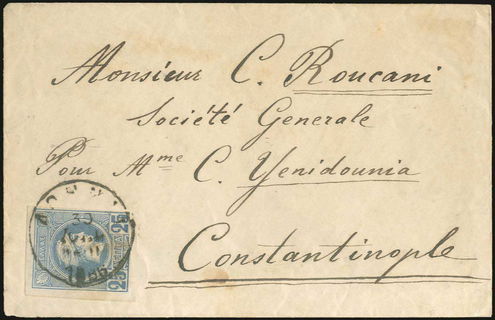 Monsieur C. Roucani
Société Generale
Pour Mme C. Yenidounia
Constantinople
30
25
25